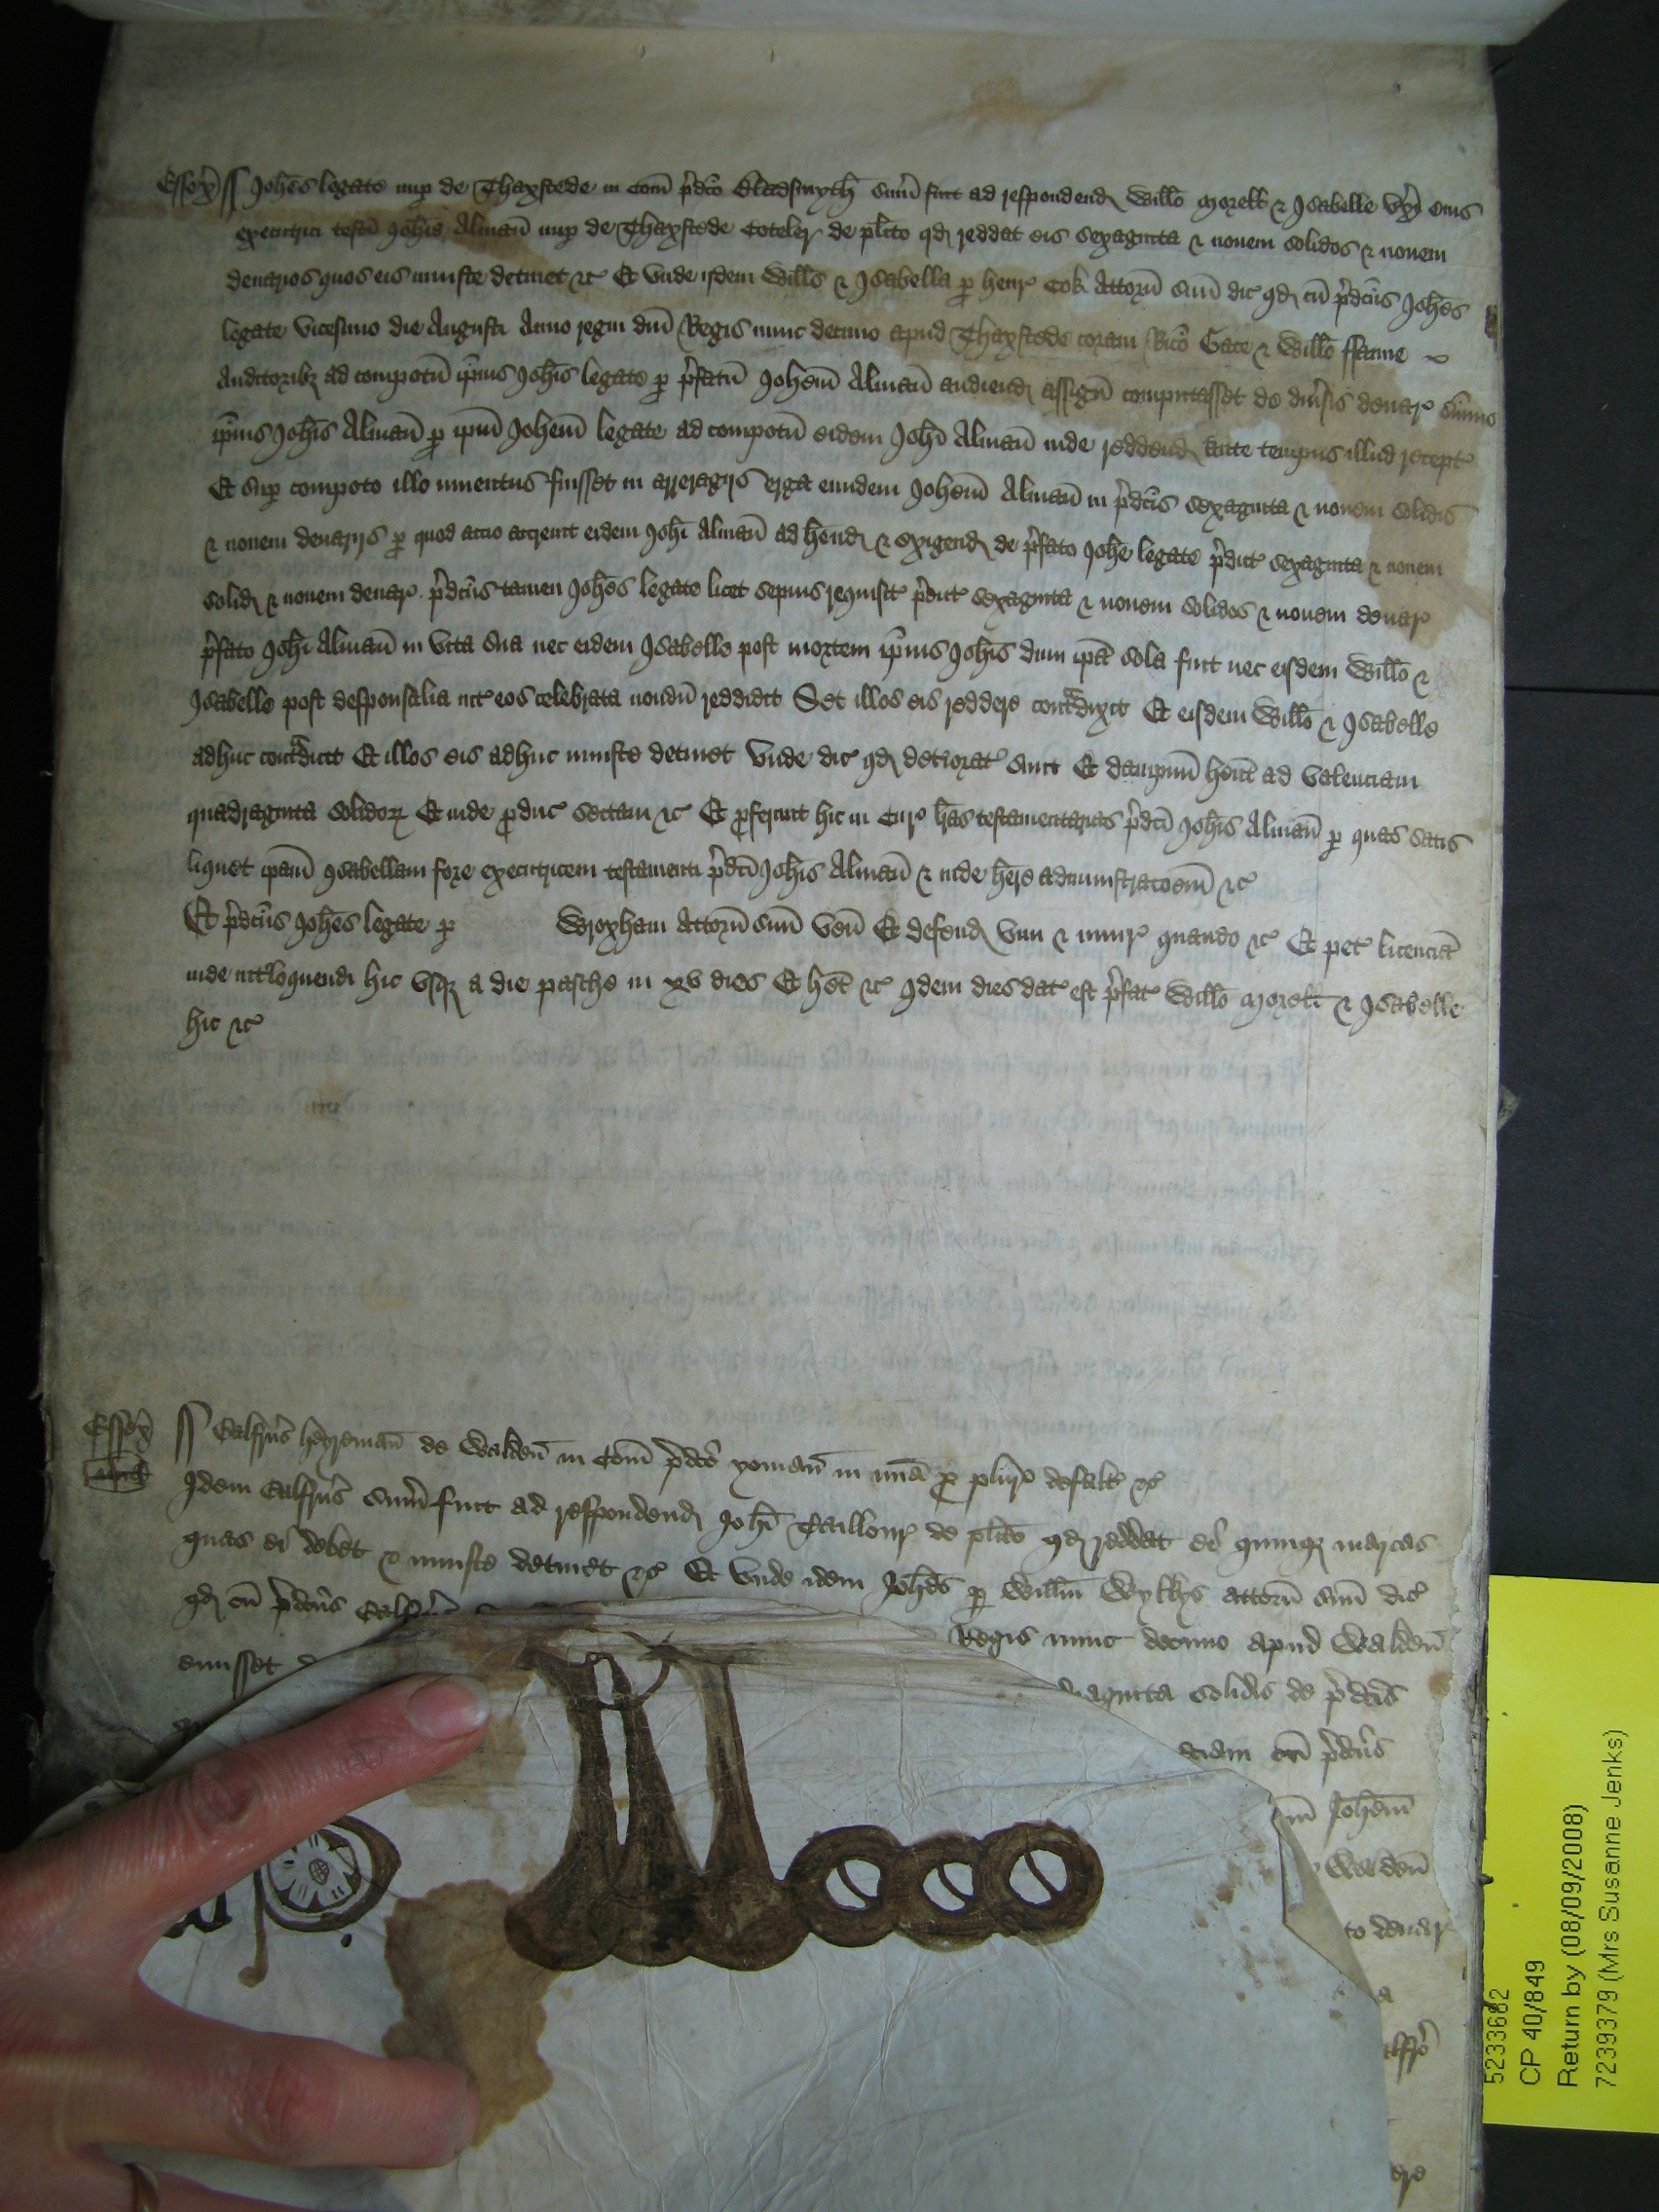 Essex̄ Joh̄es legate nup de Thaxstede in Com̄ p̄dc̄o Bladsmyth Sum̄ fuit ad respondend Will̄o Morell & Isabelle vx̄i eius
executrici testi Joh̄is Alman̄ nup de Thaxstede Coteler de pl̄ito qd reddat eis sexaginta & nouem solidos & nouem
denarios quos eis iniuste detinet &c Et vnde ijdem Will̄s & Isabella p henr Cok Attorn̄ suū dic qd cū p̄dc̄us Joh̄es
legate vicesimo die Augusti Anno regni dn̄i Regis nunc decimo apud Thaxstede coram Ric̄o Gate & Will̄o ffanne
Auditoribȝ ad compotū ip̄ius Joh̄is legate p p̄fatū Joh̄em Alman̄ audiend assign̄ computasset de diuīsis denar
ip̄ius Joh̄is Alman̄ p ip̄m Joh̄em legate ad compotū eidem Joh̄i Alman̄ inde reddend ante tempus illud recept
Et sup compoto illo inuentus fuisset in arreragijs erga eundem Joh̄em Alman̄ in p̄dc̄is sexaginta & nouem solidis
& nouem denarijs p quod accio accreuit eidem Joh̄i Alman̄ ad h̄end & exigend de p̄fato Joh̄e legate p̄dict sexaginta & nouem
solid & nouem denar p̄dc̄us tamen Joh̄es legate licet sepius requisit p̄dict sexaginta & nouem solidos & nouem denar
p̄fato Joh̄i Alman̄ in vita sua nec eidem Isabelle post mortem ip̄ius Joh̄is dum ip̄a sola fuit nec eisdem Will̄o &
Isabelle post desponsalia int eos celebrata nondū reddidit Set illos eis reddere cont̄dixit Et eisdem Will̄o & Isabelle
adhuc cont̄dicit Et illos eis adhuc iniuste detinet Vnde dic qd detiorat sunt Et dampnū h̄ent ad valenciam
quadraginta solidoꝝ Et inde p̄duc sectam &c Et p̄ferunt hic in Cur̄ l̄ras testamentarias p̄dc̄i Joh̄is Alman̄ p quas satis
liquet ip̄am Isabellam fore executricem testamenti p̄dc̄i Joh̄is Alman̄ & inde h̄ere administrac̄oem̄ &c
Et p̄dc̄us Joh̄es legate p Wroxham Attorn̄ suū ven̄ Et defend vim & iniur quando &c Et pet licenciā
inde int̄loquendi hic vsqȝ a die pasche in xv dies Et h̄et &c Idem dies dat est p̄fat Will̄o Morell & Isabelle
hic &c
Essex̄ Galfr̄us heyreman̄ de Walden̄ in Com̄ p̄dc̄o yoman̄ in m̄ia p plur̄ defalt &c
Idem Galfr̄us Sum̄ fuit ad respondend Joh̄i Taillour de pl̄ito qd reddat ei quinqȝ marcas
quas ei debet & iniuste detinet &c Et vnde idem Joh̄es p Will̄m Wylkys attorn̄ suū dic
qd cū p̄dc̄us Galfr̄us Regis nunc decimo apud Walden̄
emisset solidis de p̄dc̄is
p̄dc̄us
Joh̄em
Walden̄
denar
5233682
CP 40/849
Return by (08/09/2008)
7239379 (Mrs Susanne Jenks)